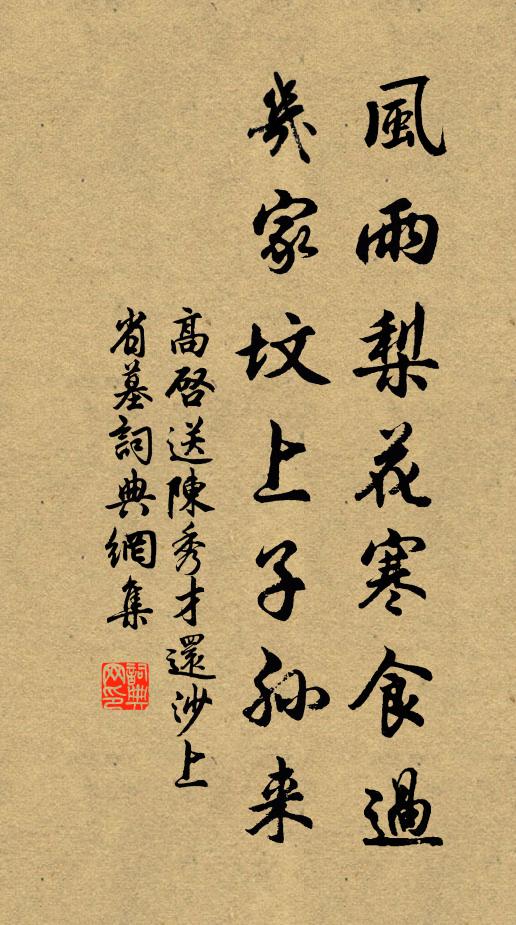 風雨梨花寒食過
幾家坟上子孙来
高啓送陳秀才還沙上
省墓詞典網集
詞典网印